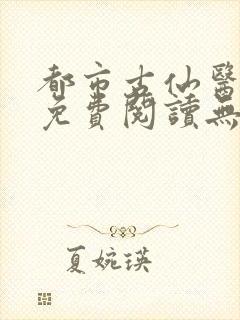 都市古仙醫
免費閱讀無
夏婉瑛